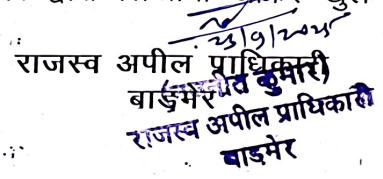 25/9/2025
राजस्व अपील प्राधिकारी
बाड़मेर
कुमारी)
राजस्व अपील प्राधिकारी
बाड़मेर